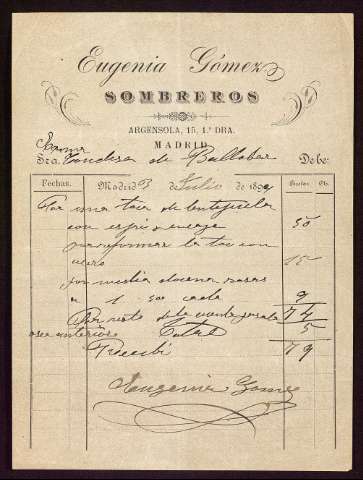 Eugenia Gómez
SOMBREROS
ARGENSOLA, 15, 1.º DRA.
MADRID
Excma
Sra. Condesa de Ballobar Debe:
Fechas. Madrid 3 Julio de 1899 Pesetas Cts.
Por una toca de lentejuela
con esprí y encaje 50
para formar la toca con
15
por media docena rosas
a 1'50 cada 9
Por resto de la cuenta pasada 74
anteriores Total 5
Recibí 79
Eugenia Gómez